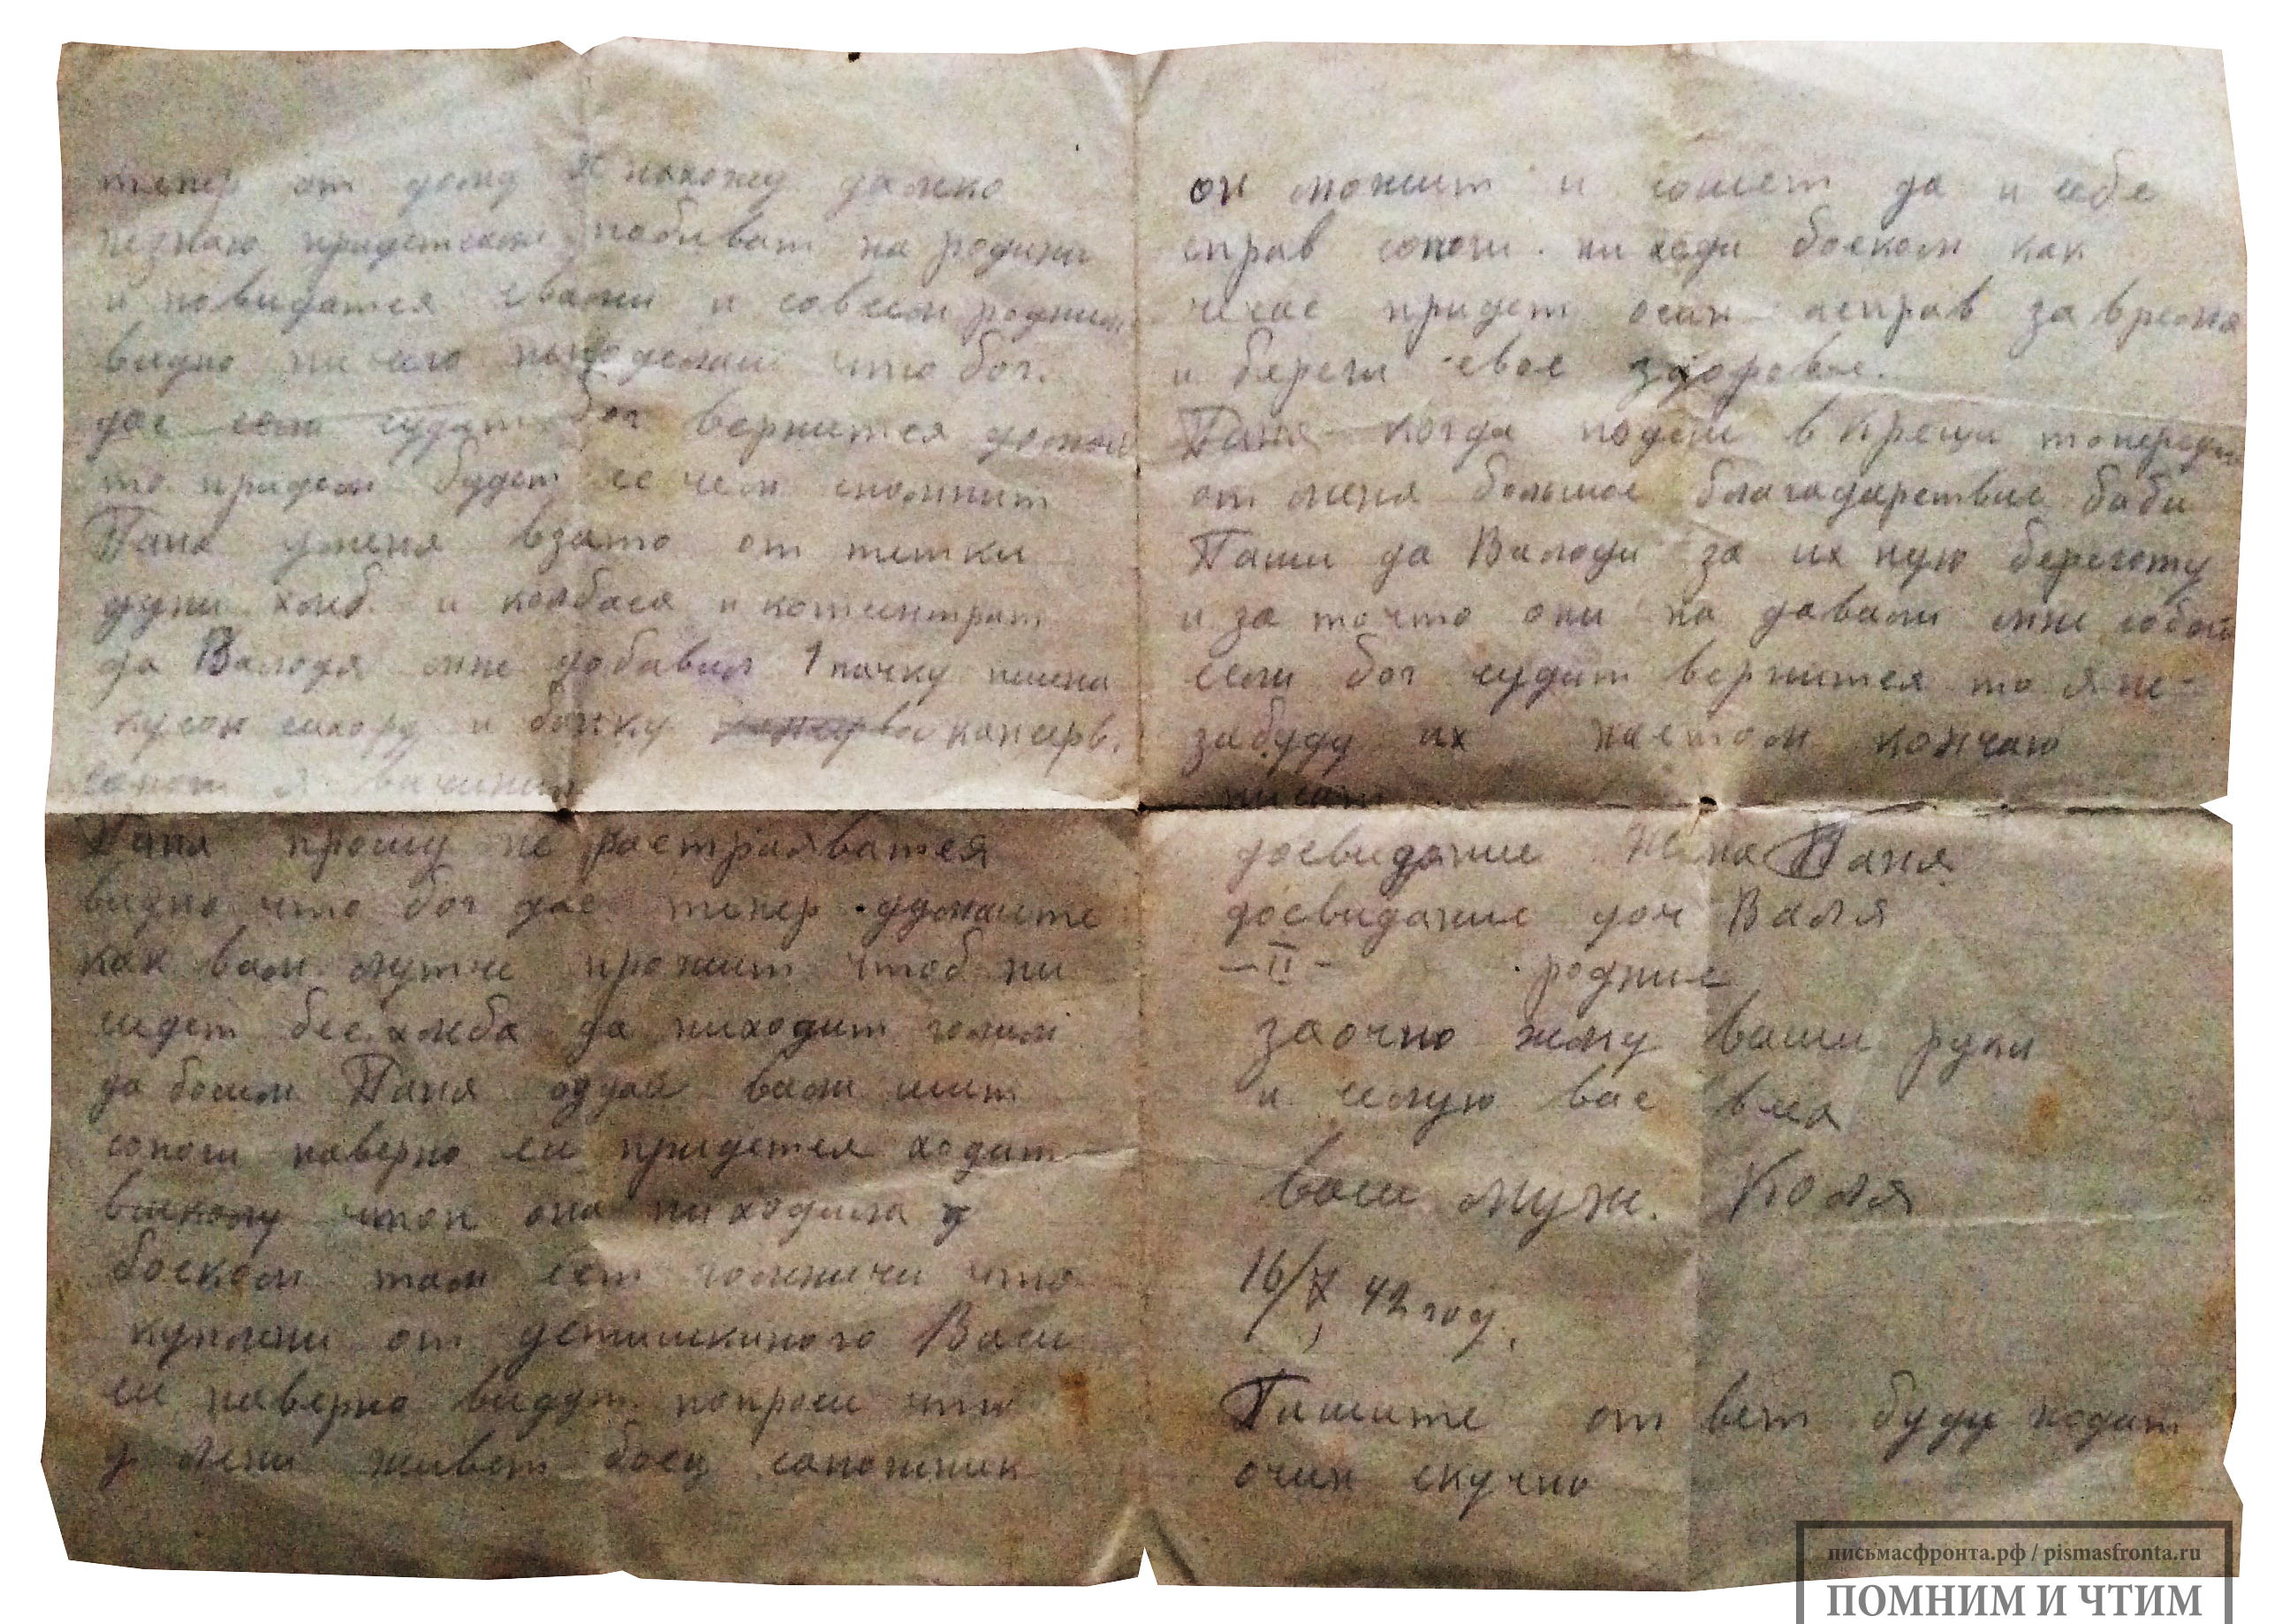 тепер от дому я нахожу далко
незнаю придетсял побиват на родини
и повидатся свами и совсем родним
видно ничего неподелаиш что бог.
дас если судит бог вернится домои
то придем будет се чем спомнит
Паня уменя взято от тетки
дуни хлеб. и колбаса и котцентрат
да Валодя мне добавил 1 пачку пшена
кусок сихору и банку консерв.
сапоги я
Паня прошу не растраяватся
видно что бог дас. тепер думаите
как вам лутче прожит чтоб ни
сидет бес хлеба да ниходит голим
да босим Паня одуай вам шит
сопоги наверно еи придется ходит
вшколу чтоп она ниходила
боском там ест голиничи что
куплени от детишкиного Васи
еи наверно видут. попроси что
у Лени живет боец сапожник
он можит и сошет да и себе
справ сопоги. ни ходи боском как
счас придет осин асправ за время
и береги свое здоровье.
Паня когда подеш в Крещи то передаи
от меня большое благодарствие баби
Паши да Валоди за их ную
и за точто они на давали мне собой
если бог судит вернится то я не-
забуду их наетом кончаю
писат
досвидание жена Паня
досвидание доч Валя
— II — родние
заочно жму ваши руки
и целую вас вса
ваш муж. Коля
16/X 42 год.
Пишите от вет буду ждат
очин скучно
письмасфронта.рф / pismasfronta.ru
ПОМНИМ И ЧТИМ